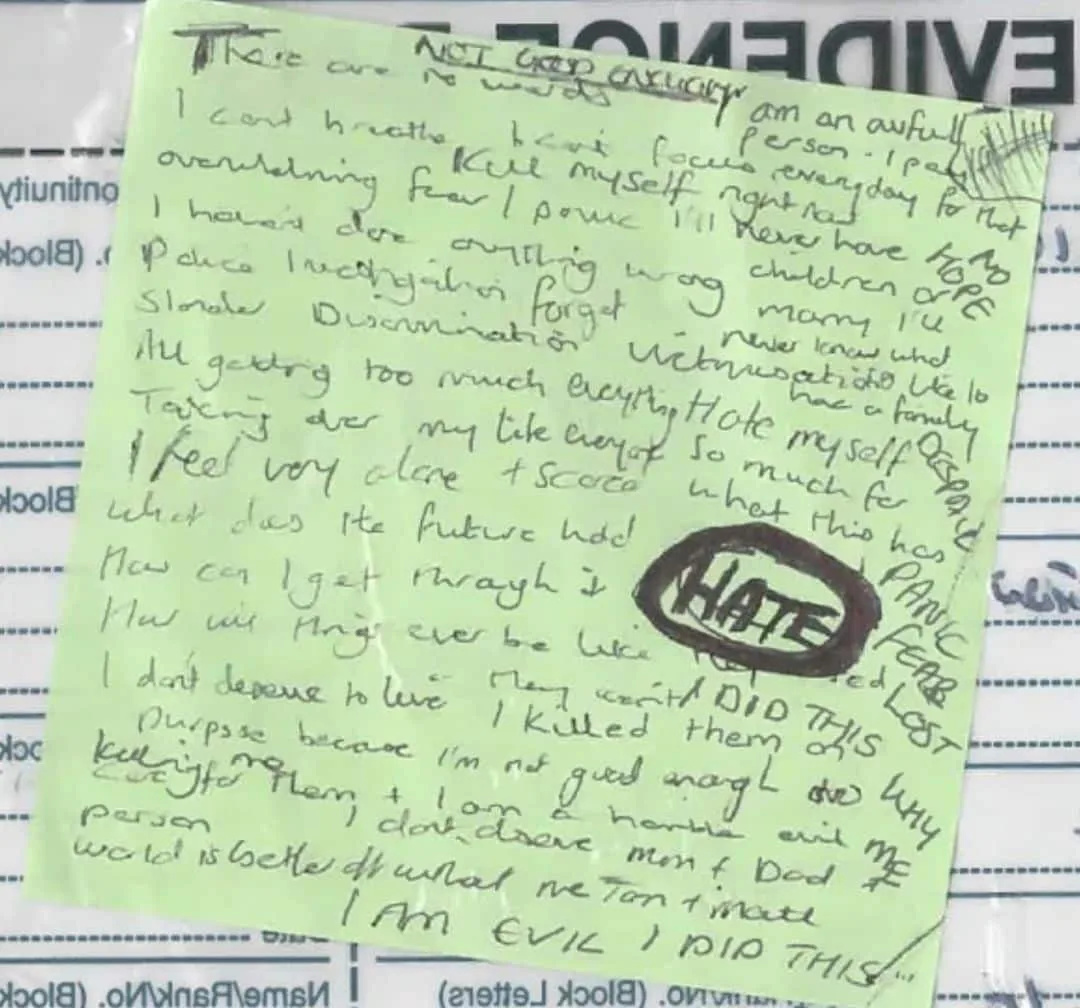 EVIDENCE
NOT GOOD ENOUGH
There are no words
I am an awful person - I pay every day for that
I can't breathe I can't focus
Kill myself right now
overwhelming fear / panic
I'll never have children or marry I'll never know what it's like to have a family
NO HOPE
I haven't done anything wrong
Police Investigation forget
Slander Discrimination Victimisation
All getting too much everything
Taking over my life everyday
Hate myself so much for what this has
I feel very alone + scared
What does the future hold
How can I get through it
How will things ever be like they
HATE
DESPAIR
PANIC
FEAR
LOST
I don't deserve to live
I DID THIS
WHY ME
I killed them on purpose because I'm not good enough to care for them + I am a horrible evil person
killing me
I don't deserve mum + Dad
world is better off without me
I AM EVIL I DID THIS
ontinuity
(Block
Block
Name/Rank/No. (Block
/Rank/No. (Block Letters)